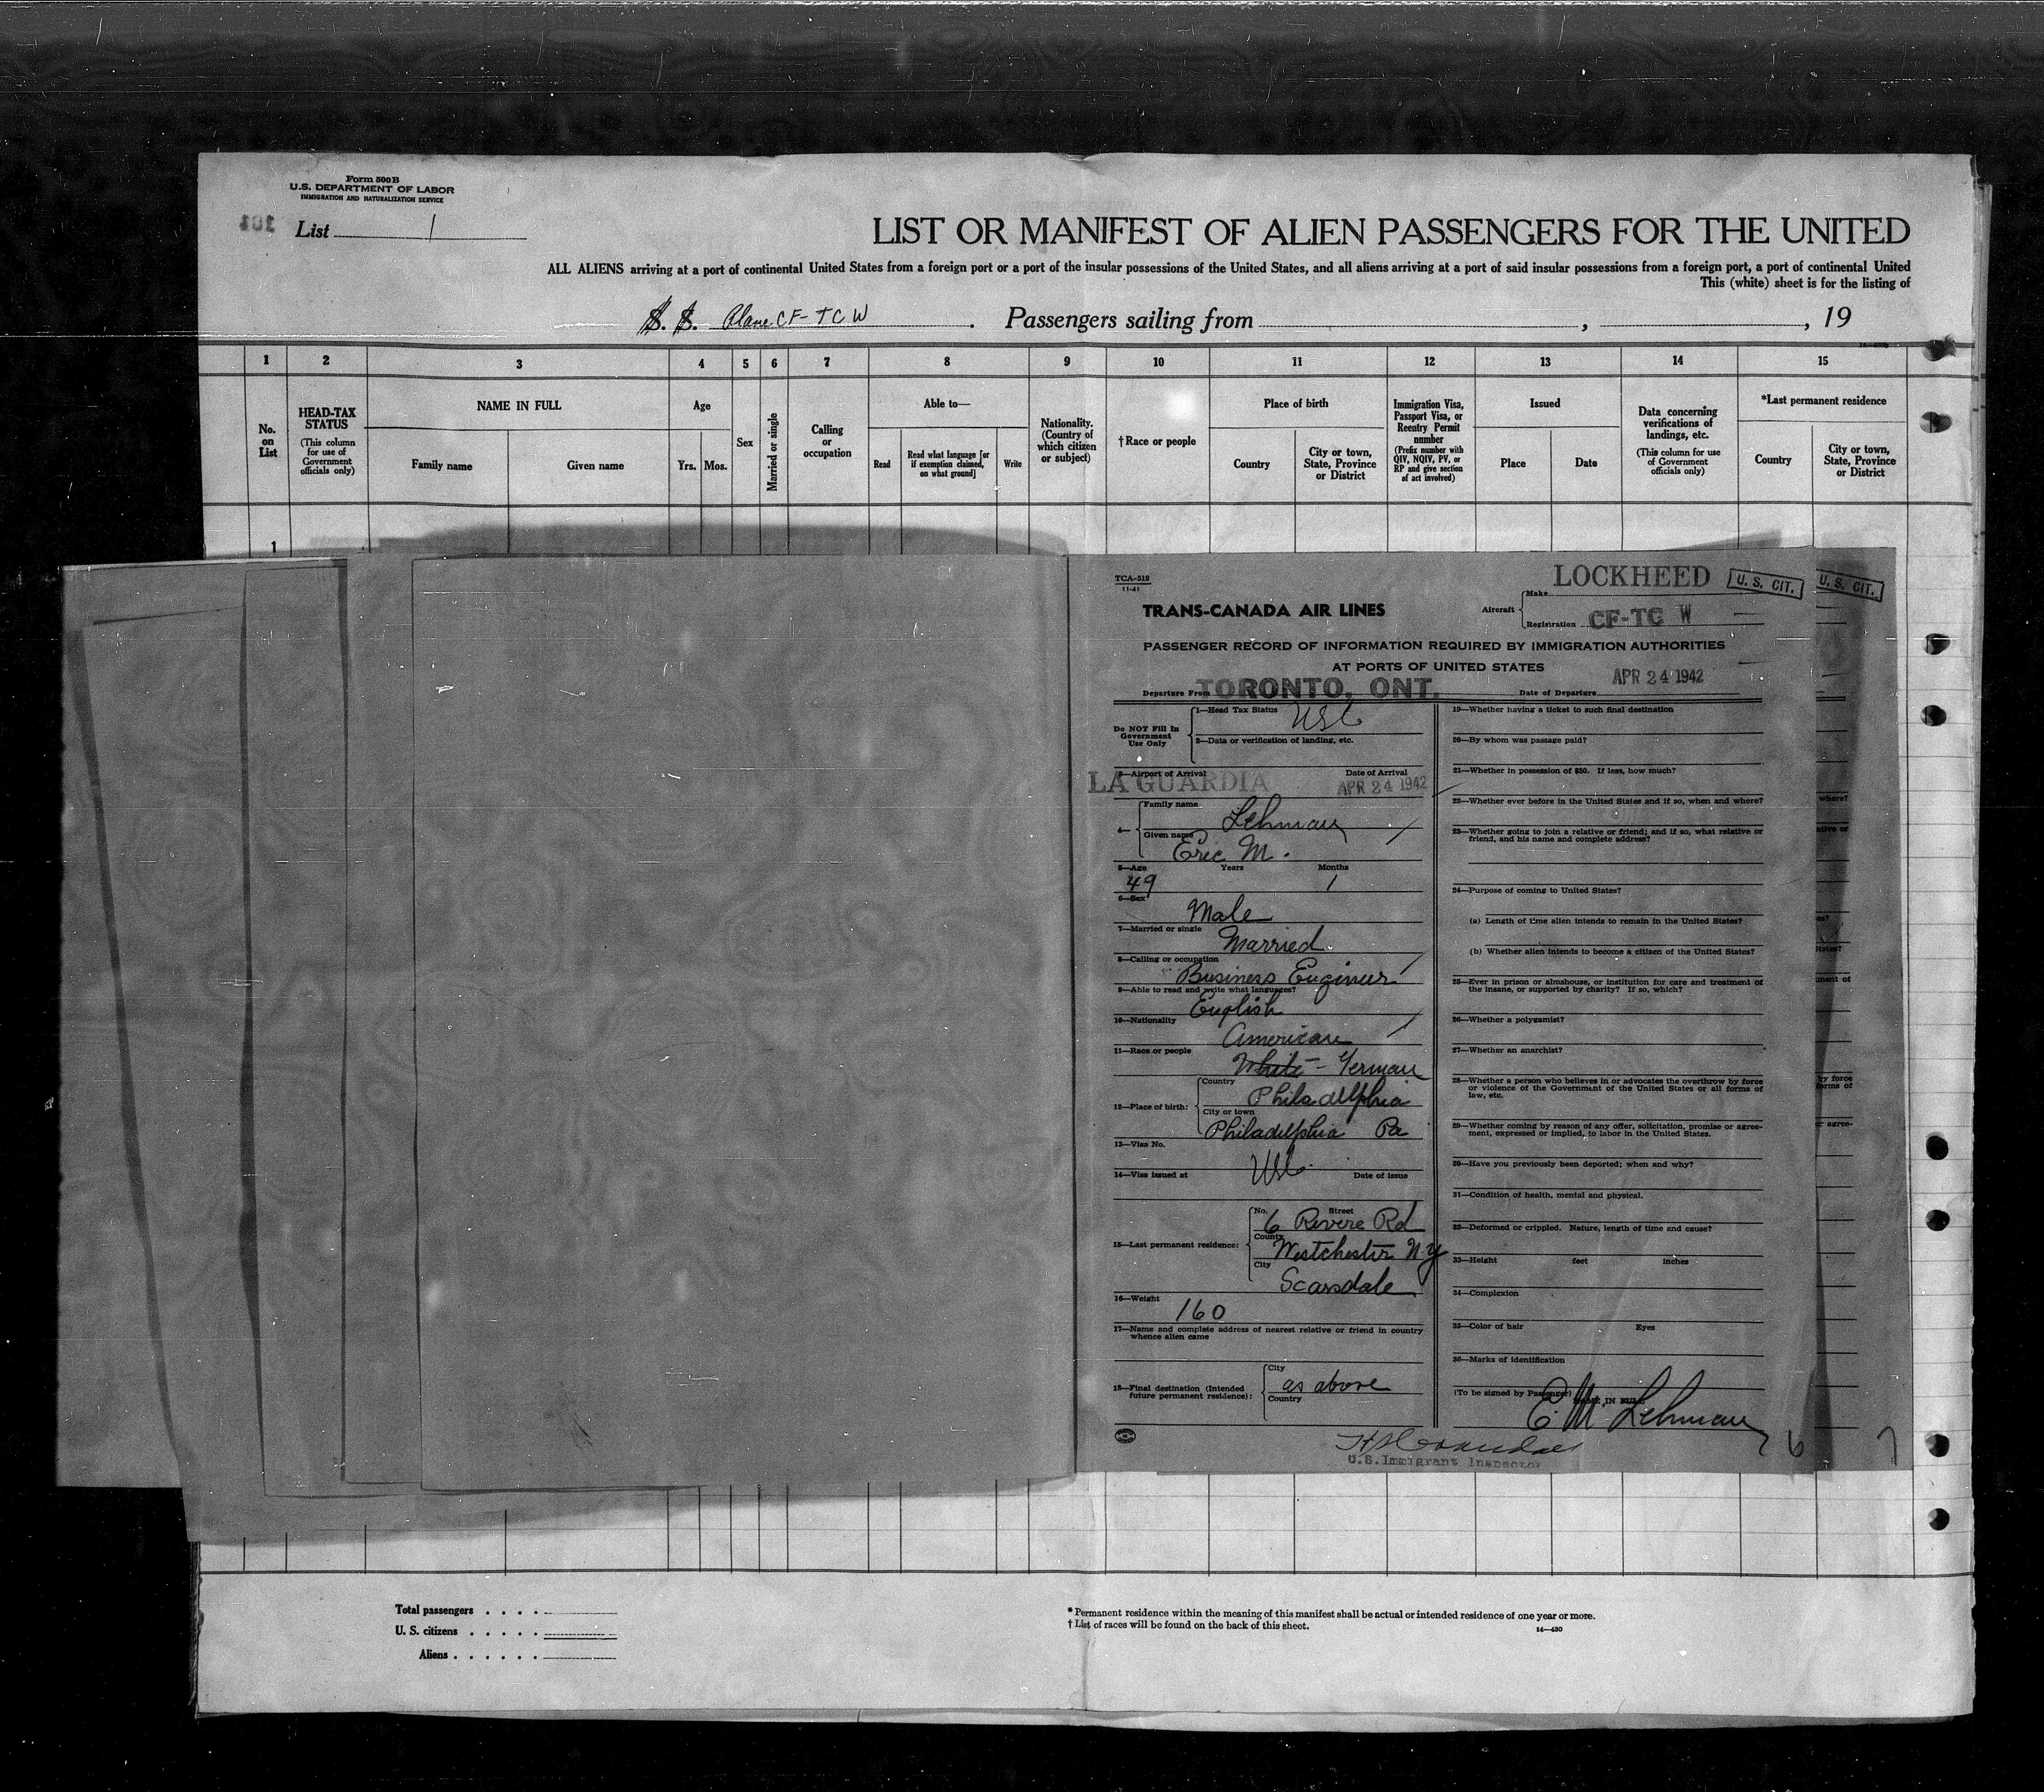 Form 500B
U.S. DEPARTMENT OF LABOR
IMMIGRATION AND NATURALIZATION SERVICE
List 1
LIST OR MANIFEST OF ALIEN PASSENGERS FOR THE UNITED
ALL ALIENS arriving at a port of continental United States from a foreign port or a port of the insular possessions of the United States, and all aliens arriving at a port of said insular possessions from a foreign port, a port of continental United
This (white) sheet is for the listing of
S. S. Plane CF-TCW. Passengers sailing from , , 19
1 2 3 4 5 6 7 8 9 10 11 12 13 14 15
No. on List
HEAD-TAX STATUS
(This column for use of Government officials only)
NAME IN FULL
Family name
Given name
Age
Yrs. Mos.
Sex
Married or single
Calling or occupation
Able to—
Read
Read what language [or if exemption claimed, on what ground]
Write
Nationality. (Country of which citizen or subject)
†Race or people
Place of birth
Country
City or town, State, Province or District
Immigration Visa, Passport Visa, or Reentry Permit number
(Prefix number with QIV, NQIV, PV, or RP and give section of act involved)
Issued
Place
Date
Data concerning verifications of landings, etc.
(This column for use of Government officials only)
*Last permanent residence
Country
City or town, State, Province or District
1
TCA-516
11-41
TRANS-CANADA AIR LINES
Aircraft
Make LOCKHEED
Registration CF-TC W
U. S. CIT.
U. S. CIT.
PASSENGER RECORD OF INFORMATION REQUIRED BY IMMIGRATION AUTHORITIES
AT PORTS OF UNITED STATES
Departure From TORONTO, ONT. Date of Departure APR 24 1942
Do NOT Fill In
Government
Use Only
1—Head Tax Status USC
2—Data or verification of landing, etc.
3—Airport of Arrival LA GUARDIA Date of Arrival APR 24 1942
4—Family name Lehman
Given name Eric M.
5—Age 49 Years Months 1
6—Sex Male
7—Married or single Married
8—Calling or occupation Business Engineer
9—Able to read and write what languages? English
10—Nationality American
11—Race or people White - German
12—Place of birth:
Country Philadelphia
City or town Philadelphia Pa
13—Visa No.
14—Visa issued at USC Date of issue
15—Last permanent residence:
No. 6 Street Revere Rd
County Westchester N.Y
City Scarsdale
16—Weight 160
17—Name and complete address of nearest relative or friend in country
whence alien came
18—Final destination (Intended
future permanent residence):
City as above
Country
19—Whether having a ticket to such final destination
20—By whom was passage paid?
21—Whether in possession of $50. If less, how much?
22—Whether ever before in the United States and if so, when and where?
23—Whether going to join a relative or friend; and if so, what relative or
friend, and his name and complete address?
24—Purpose of coming to United States?
(a) Length of time alien intends to remain in the United States?
(b) Whether alien intends to become a citizen of the United States?
25—Ever in prison or almshouse, or institution for care and treatment of
the insane, or supported by charity? If so, which?
26—Whether a polygamist?
27—Whether an anarchist?
28—Whether a person who believes in or advocates the overthrow by force
or violence of the Government of the United States or all forms of
law, etc.
29—Whether coming by reason of any offer, solicitation, promise or agree-
ment, expressed or implied, to labor in the United States.
30—Have you previously been deported; when and why?
31—Condition of health, mental and physical.
32—Deformed or crippled. Nature, length of time and cause?
33—Height feet inches
34—Complexion
35—Color of hair Eyes
36—Marks of identification
(To be signed by Passenger) NAME IN FULL
E. M. Lehman
U.S. Immigrant Inspector
6
7
where?
ative or
es?
States?
ment of
by force
orms of
or agree-
Total passengers . . . .
U. S. citizens . . . . .
Aliens . . . . . .
* Permanent residence within the meaning of this manifest shall be actual or intended residence of one year or more.
† List of races will be found on the back of this sheet.
14—430